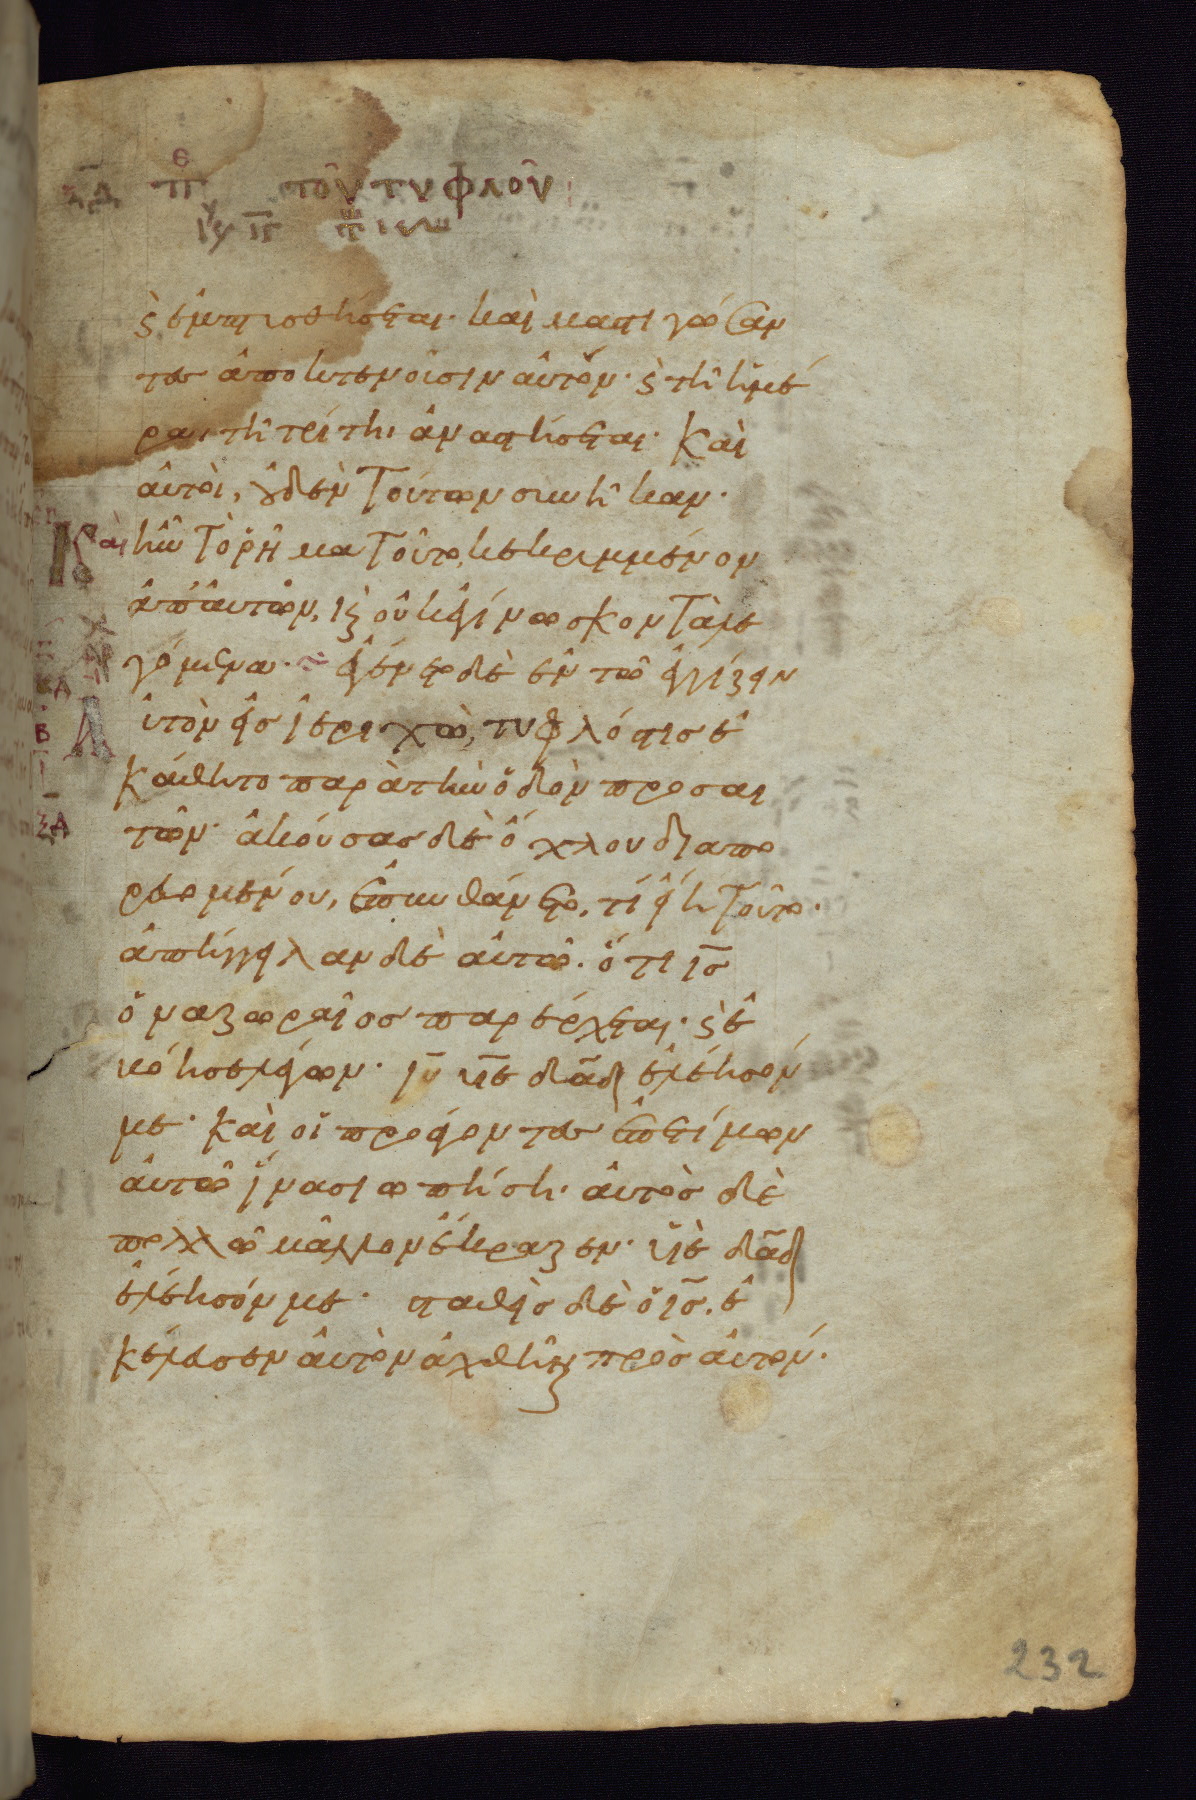 ξδ πε τοῦ τυφλοῦ
ϛ ἐμπτυσθήσεται· καὶ μαστιγώσαν
τες ἀποκτενοῦσιν αὐτόν· ϛ τῆ ἡμέ
ραι τῆ τρίτηι ἀναστήσεται· Καὶ
αὐτοὶ, οὐδὲν τούτων συνῆκαν·
Καὶ ἦν τὸ ῥῆμα τοῦτο κεκρυμμένον
ἀπ' αὐτῶν, ϗ οὐκ ἐγίνωσκον τὰ λε
γόμενα· ἐγένετο δὲ ἐν τῶ ἐγγίζειν
Αὐτὸν εἰς ἱεριχὼ, τυφλός τις ἐ
κάθητο παρὰ τὴν ὁδὸν προσαι
τῶν· ἀκούσας δὲ ὄχλου διαπο
ρευομένου, ἐπυνθάνετο, τί εἴη τοῦτο·
ἀπήγγειλαν δὲ αὐτῶ· ὅτι ις
ὁ ναζωραῖος παρέρχεται· ϛ ἐ
βόησε λέγων· ιυ υιε δαδ ἐλέησόν
με· καὶ οἱ προάγοντες ἐπετίμων
αὐτῶ ἵνα σιωπήση· αὐτὸς δὲ
πολλῶ μᾶλλον ἔκραζεν· υιὲ δαδ
ἐλέησόν με· σταθεὶς δὲ ὁ ις, ἐ
κέλευσεν αὐτὸν ἀχθῆναι πρὸς αὐτόν·
ΞΔ
232